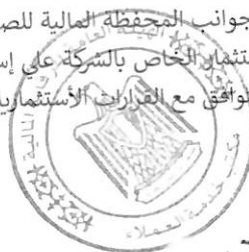 جوانب المحفظة المالية للص
ستثمار الخاص بالشركة على إس
توافق مع القرارات الأستثمارية
الهيئة العامة للرقابة المالية
مكتب خدمة العملاء